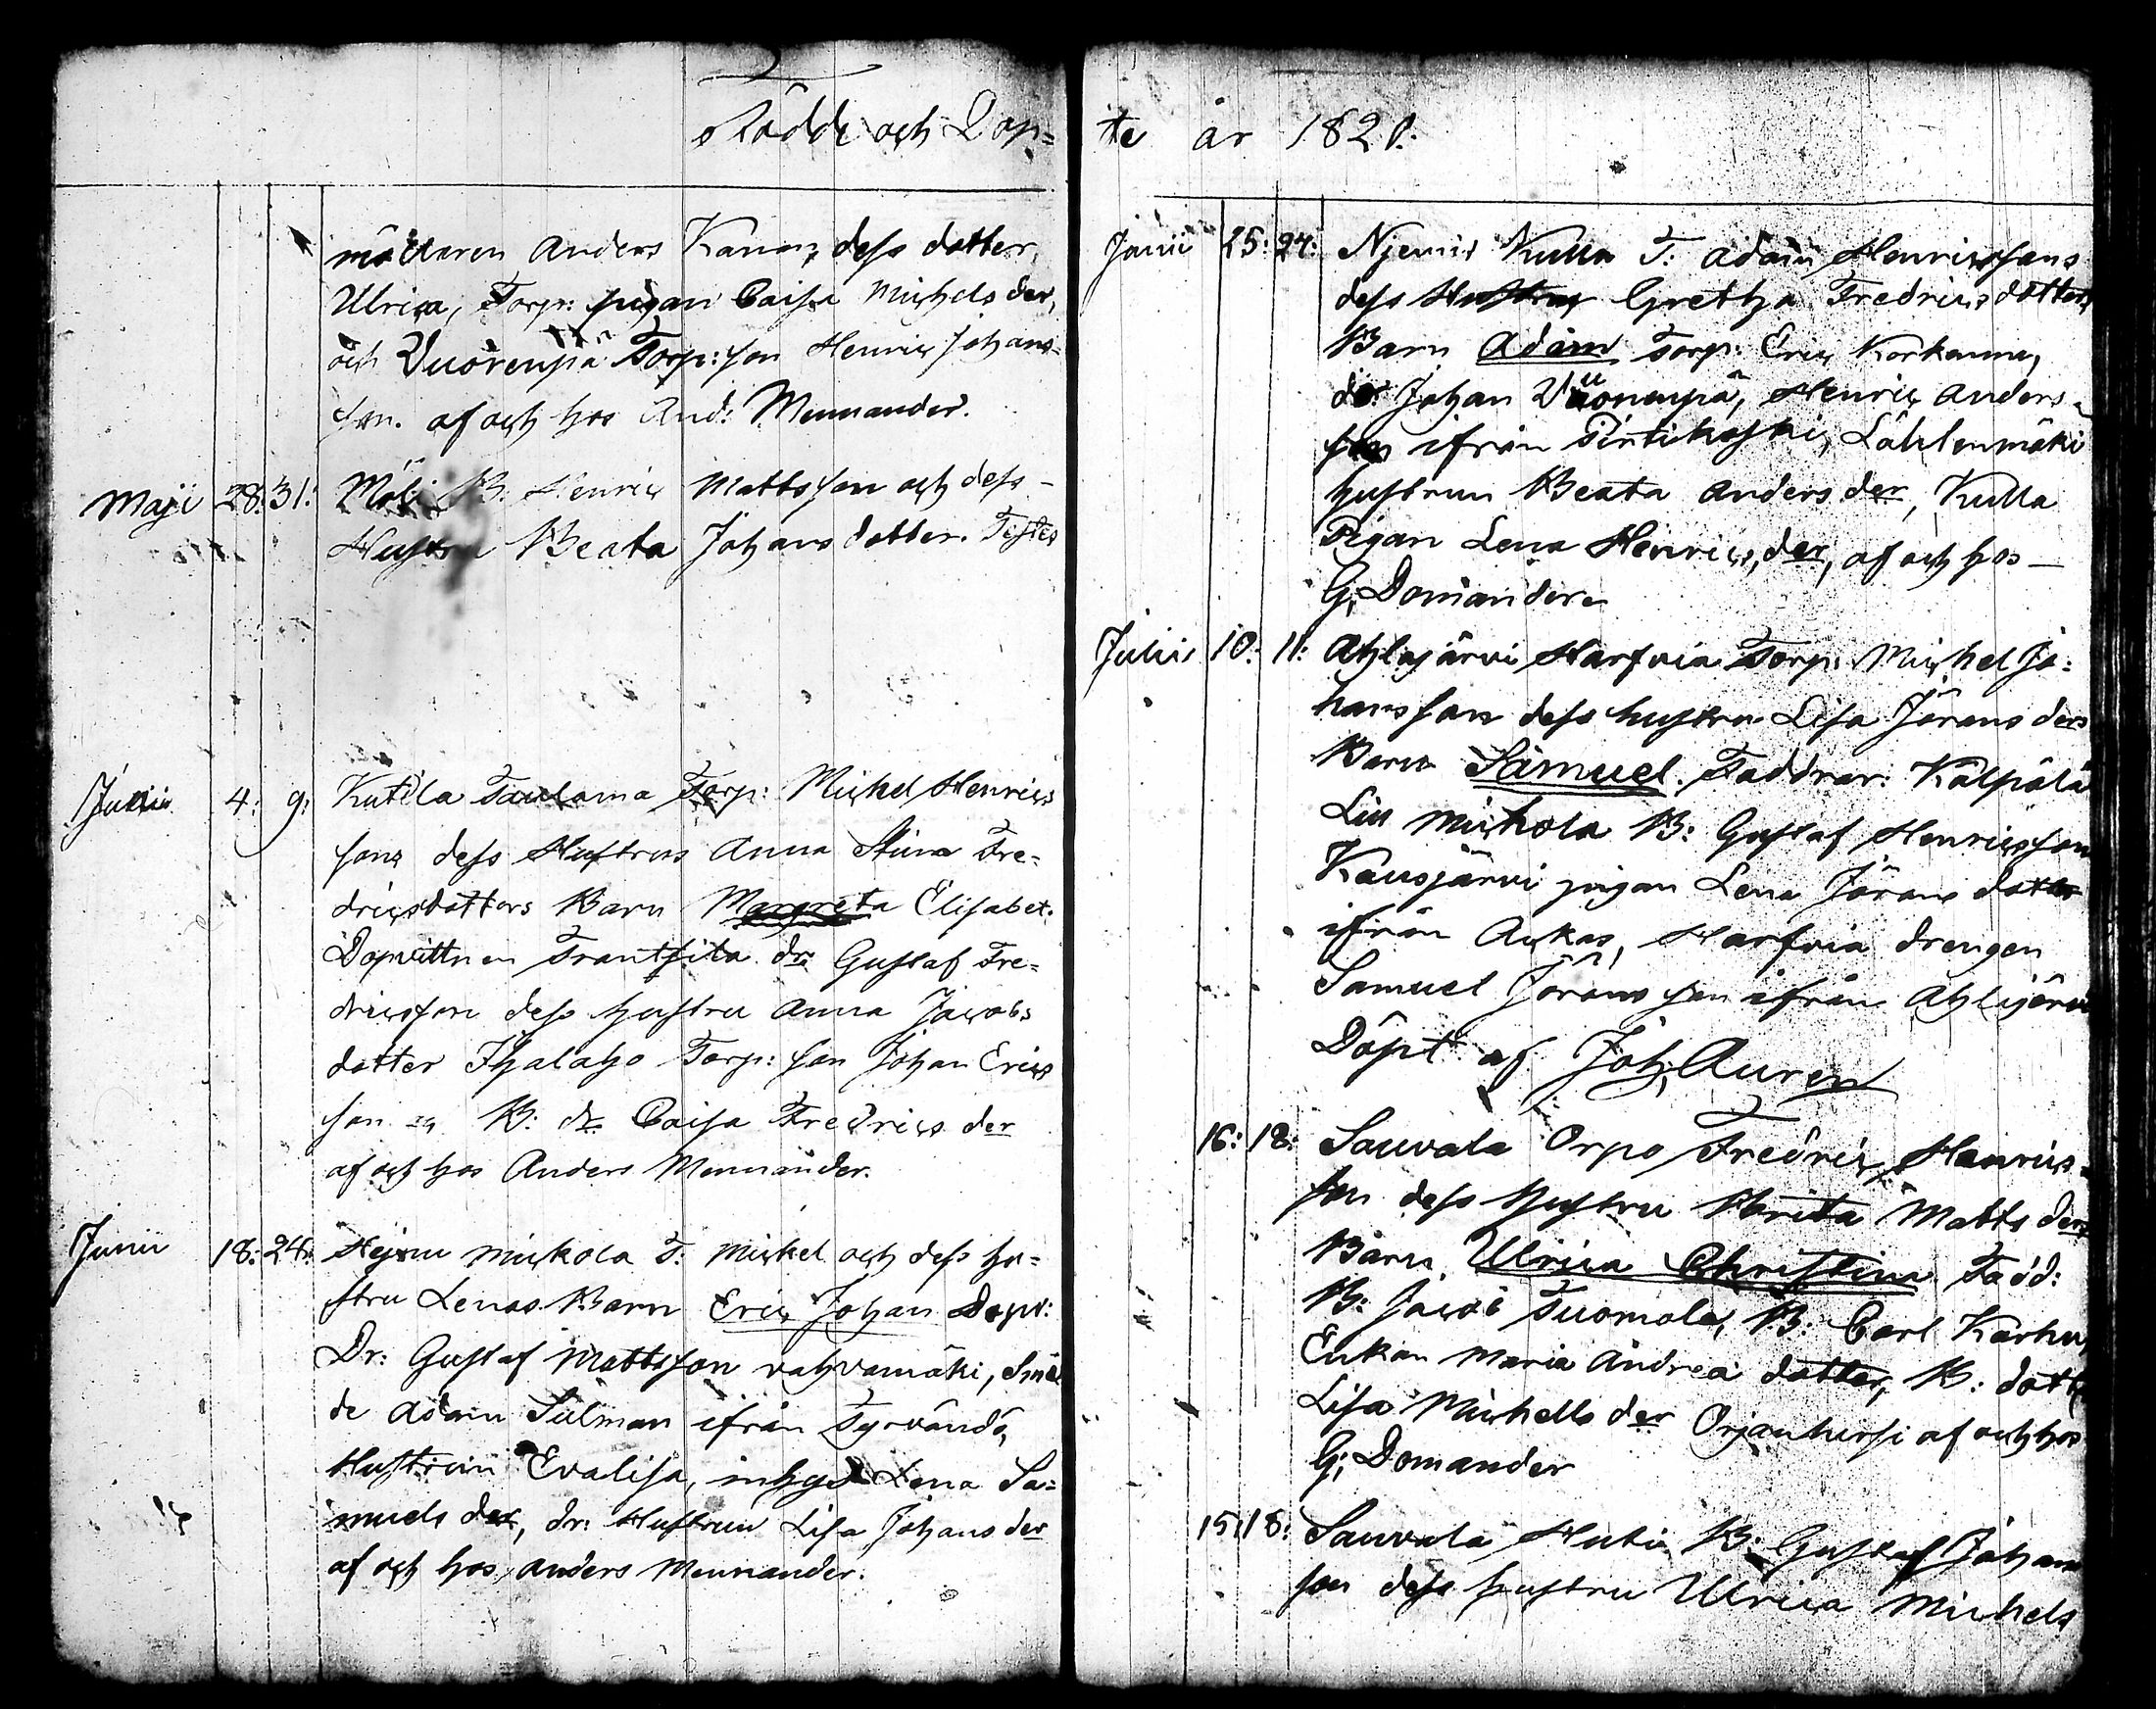 Födde och Döp=
mållaren Anders Kanan, dess dotter,
Ulrica, Torp: pigan Caisa Michels der,
och Vuorenpä Torp: son Henric Johans-
son. af och hos And: Mennander.
Maji 28: 31: B: Henric Mattsson och dess
Hustru Beata Johans dotter. Testes
Junii 4: 9: Kutila Taulama Torp: Michel Henrics
sons dess Hustrus Anna Stina Fre=
dricsdotters Barn Margreta Elisabet.
Dopvittnen Trantsila dr: Gustaf Fre=
dricsson dess hustru Anna Jacobs
dotter Ihalaho Torp: son Johan Erics
son B: dr Caisa Fredrics der
af och hos Anders Mennander.
Junii 18: 24: Mickola T: Mickel och dess hu=
stru Lenas Barn Eric Johan Dopv:
Dr: Gustaf Mattsson vahvamäki, Sme
de Adam Silman ifrån Tyrvändö,
Hustrun Evalisa, inhys: Lena Sa=
muels der, dr: Hustrun Lisa Johans der
af och hos, anders Mennander.
te år 1821.
Junii 25: 24: Kulla T: Adam Henricssons
dess Hustrus Gretha Fredrics dotters
Barn Adam Torp: Eric Korkamu,
do: Johan Vuorenpä, Henric Anders=
son ifrån Pirtikoski, Lählenmäki
hustrun Beata Anders der, Kulla
Pigan Lena Henrics, der, af och hos
G; Domander
Julii 10: 11: Ahlajärvi Harfvia Torp: Michel Jo=
hans sons dess hustru Lisa Jörans ders
Barn Samuel. Faddrar: Kälpälä
Mickola B: Gustaf Henricsson
Kausjärvi pigan Lena Jörans dotter
ifrån Ackas, Harfvia drengen
Samuel Jörans son ifrån Ahlajärvi
Döpt af Joh; Auren
16: 18: Sauvala Orpo Fredric Henrics=
son dess hustru Brita Matts ders
Barn Ulrica Christina Fadd:
B: Jacob Tuomola, B: Carl Karhu,
Enkan Maria Andreä dotter, B: dott
Lisa Michells der Orjanhirsi af och hos
G; Domander
15: 18: Sauvala Huti B: Gustaf Johans
son dess hustru Ulrica Michels